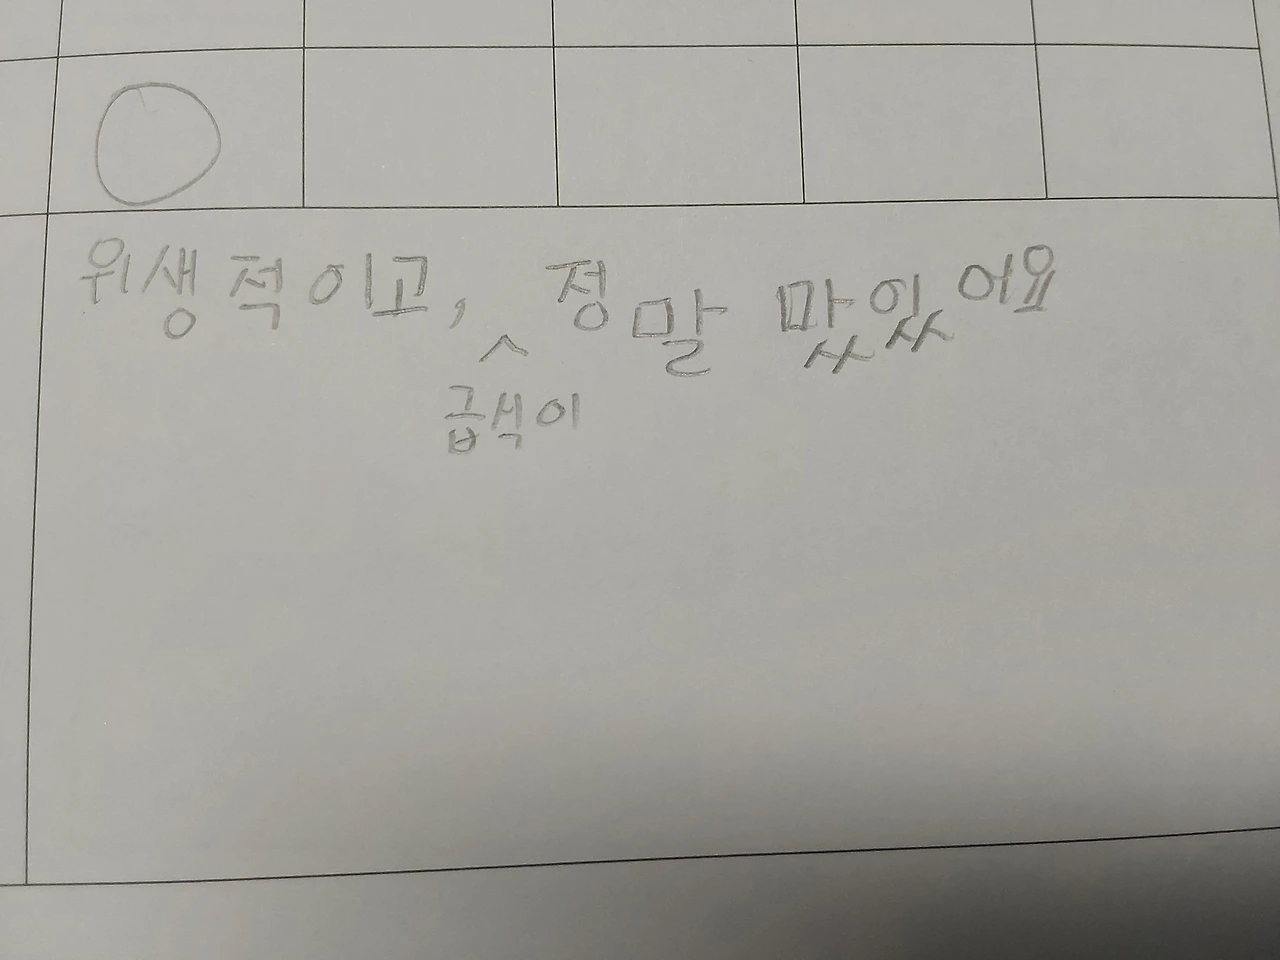 위생적이고, 정말 맜있어요
^
급식이